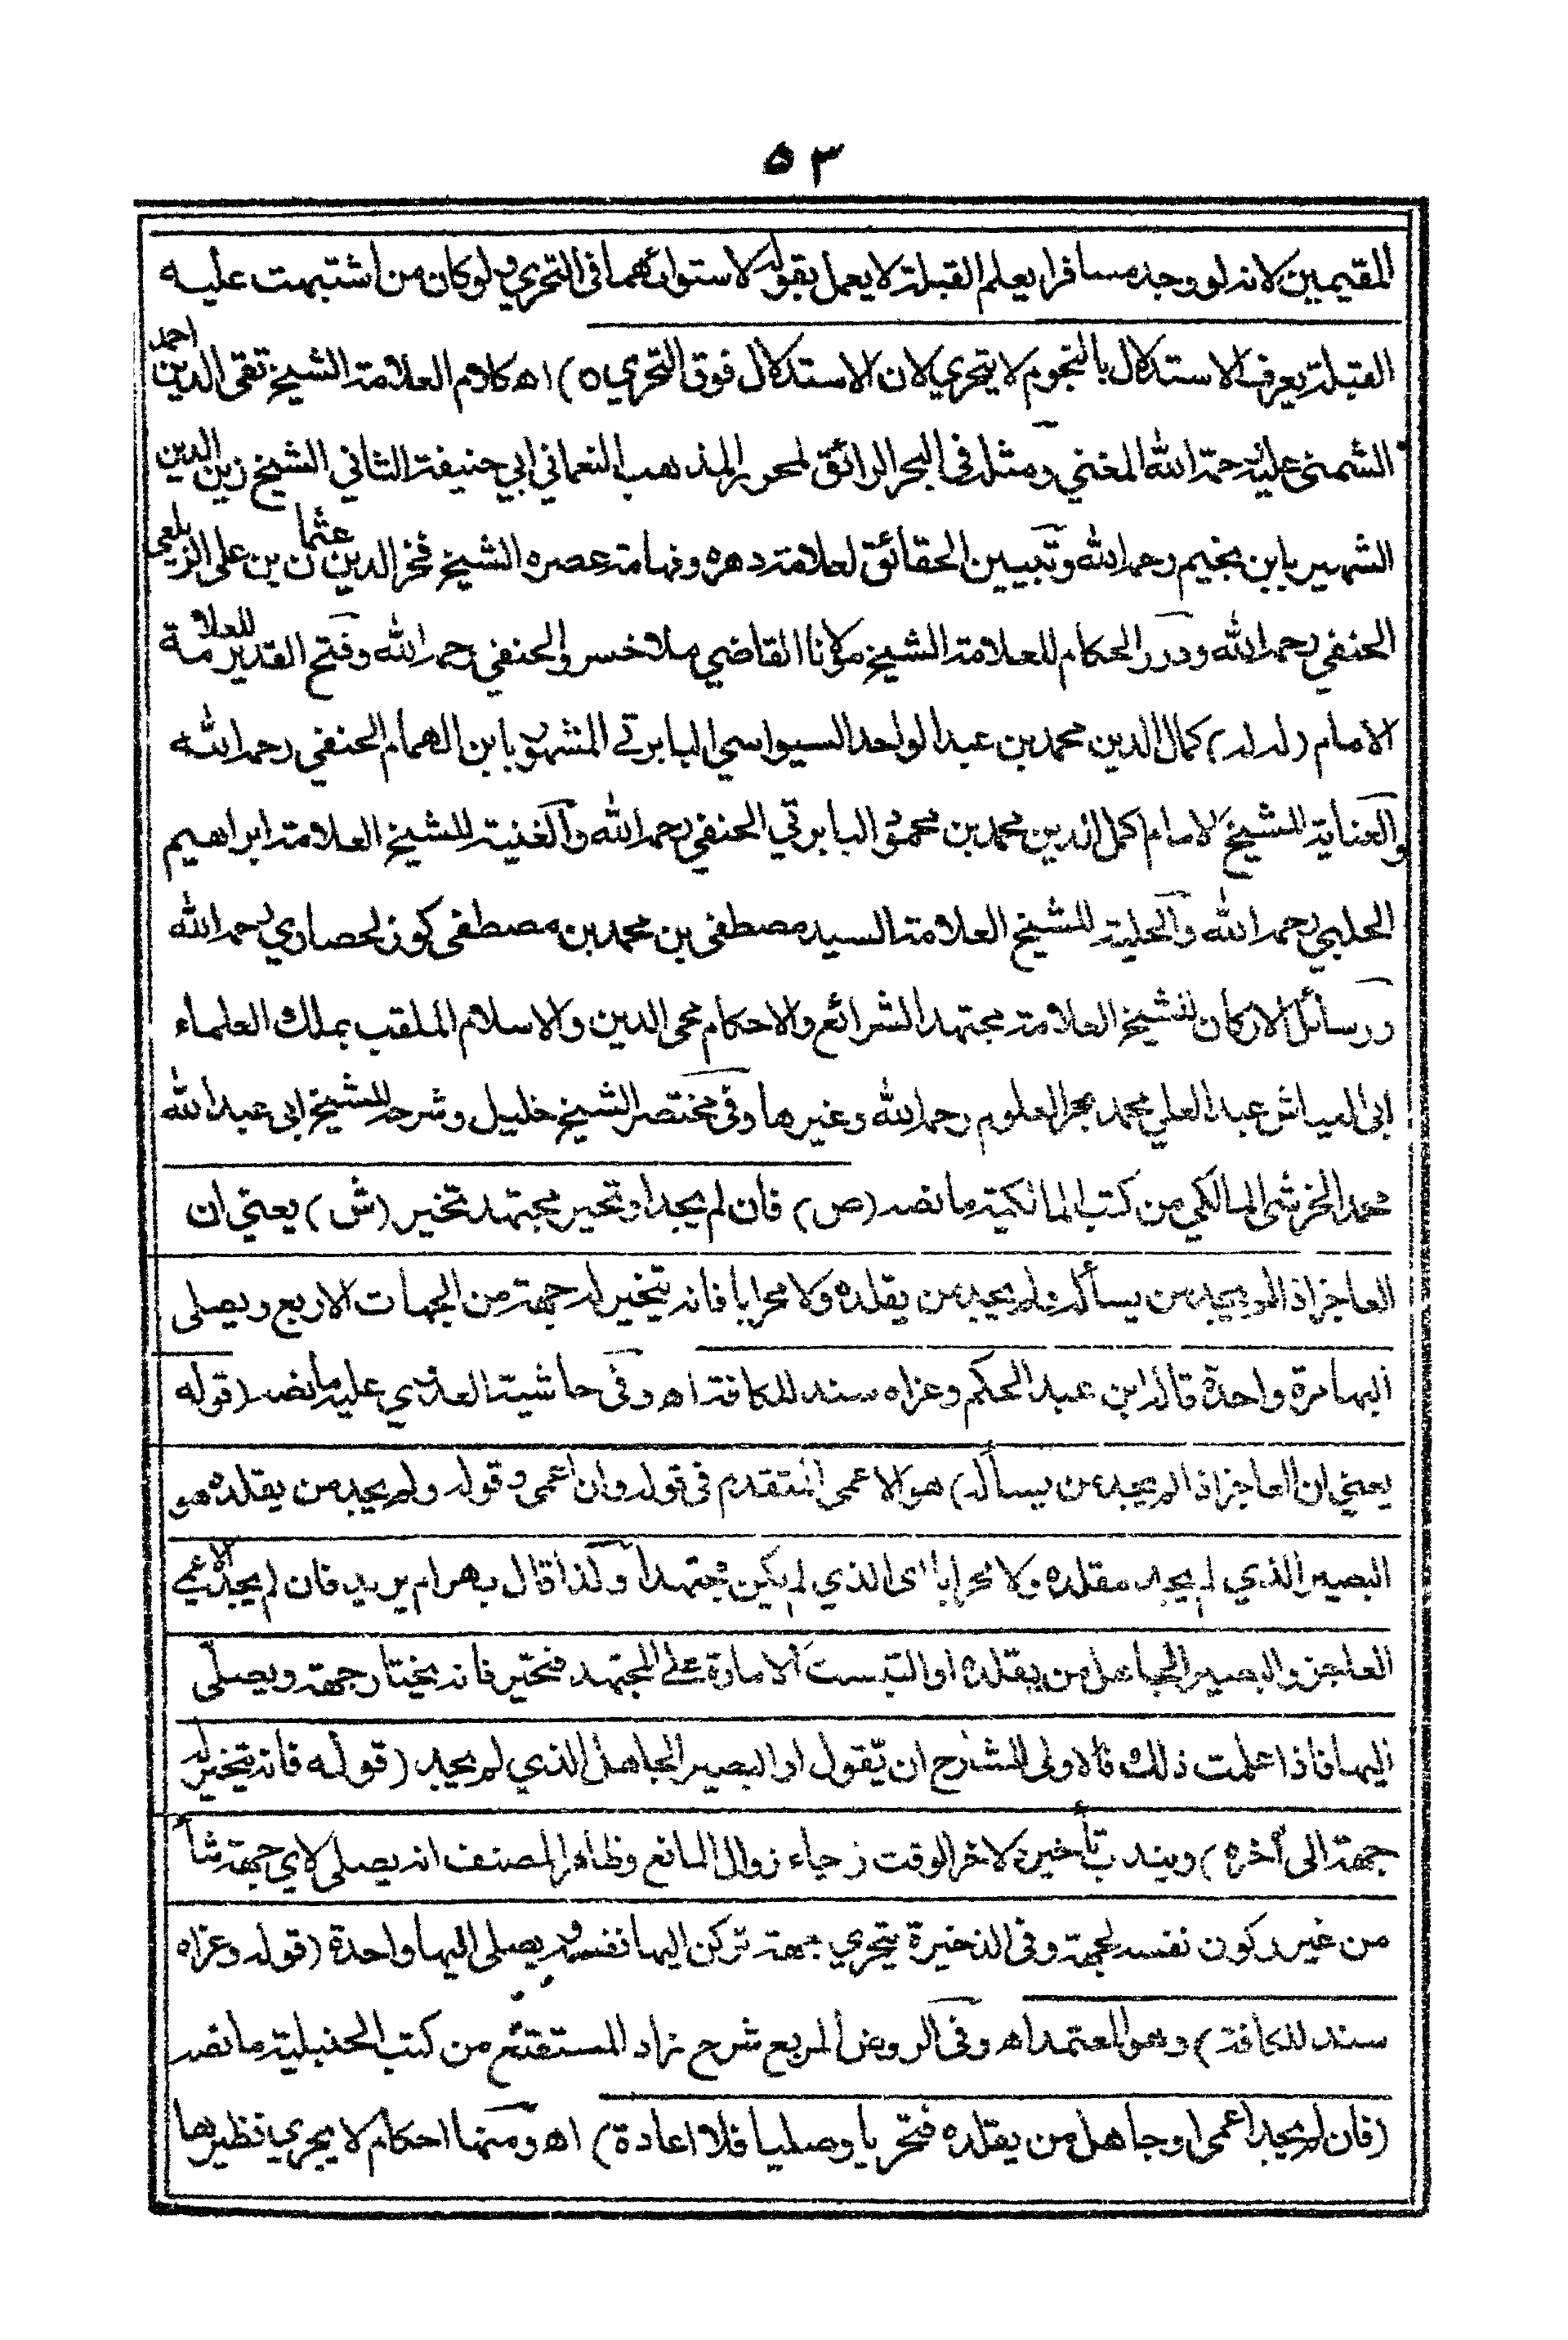 ٥٣
المقيمين لانه لو وجد مسافرا يعلم القبلة لا يعمل بقوله لاستوائهما في التحري ولو كان من اشتبهت عليه
القبلة يعرف الاستدلال بالنجوم لا يتحري لان الاستدلال فوق التحري ٥) اه كلام العلامة الشيخ تقى الدين احمد
الشمنى عليه رحمة الله المغني ومثله في البحر الرائق لمحرر المذهب النعماني ابي حنيفة الثاني الشيخ زين الدين
الشهير بابن نجيم رحمه الله وتبيين الحقائق لعلامة دهره وفهامة عصره الشيخ فخر الدين عثمان بن على الزيلعي
الحنفي رحمه الله ودرر الحكام للعلامة الشيخ مولانا القاضي ملا خسرو الحنفي رحمه الله وفتح القدير للعلامة
الامام (له له) كمال الدين محمد بن عبد الواحد السيواسي البابرتي المشهور بابن الهمام الحنفي رحمه الله
والعناية للشيخ الامام اكمل الدين محمد بن محمود البابرتي الحنفي رحمه الله والغنية للشيخ العلامة ابراهيم
الحلبي رحمه الله والحلية للشيخ العلامة السيد مصطفى بن محمد بن مصطفى كوز لحصاري رحمه الله
ورسائل الاركان للشيخ العلامة مجتهد الشرائع والاحكام محى الدين والاسلام الملقب بملك العلماء
ابى العياش عبد العلي محمد بحر العلوم رحمه الله وغيرها وفى مختصر الشيخ خليل وشرحه للشيخ ابى عبد الله
محمد الخرشى المالكي من كتب المالكية ما نصه (ص) فان لم يجد او تحير مجتهد تخير (ش) يعني ان
العاجز اذا لم يجد من يسأله ولم يجد من يقلده ولا محرابا فانه يتخير له جهة من الجهات الاربع ويصلى
اليها مرة واحدة قاله ابن عبد الحكم وعزاه سند للكافة اه وفى حاشية العدوي عليه ما نصه (قوله
يعني ان العاجز اذا لم يجد من يسأله) هو الاعمى المتقدم في قوله وان اعمى وقوله ولم يجد من يقلده هو
البصير الذي لم يجد مقلده ولا محرابا اى الذي لم يكن مجتهدا وكذا قال بهرام يريد فان لم يجد الاعمى
العاجز والبصير الجاهل من يقلده او التبست الامارة على المجتهد فتحير فانه يختار جهة ويصلى
اليها فاذا علمت ذلك فالاولى للشارح ان يقول او البصير الجاهل الذي لم يجد (قوله فانه يتخير له
جهة الى آخره) ويندب تأخيره لاخر الوقت رجاء زوال المانع وظاهر المصنف انه يصلى لاي جهة شأ
من غير ركون نفسه لجهة وفى الذخيرة يتحري جهة تركن اليها نفسه ويصلى اليها واحدة (قوله وعزاه
سند للكافة) وهو المعتمد اه وفى الروض المربع شرح زاد المستقنع من كتب الحنبلية ما نصه
(فان لم يجد اعمى او جاهل من يقلده فتحريا وصليا فلا اعادة) اه ومنها احكام لا يجري نظيرها